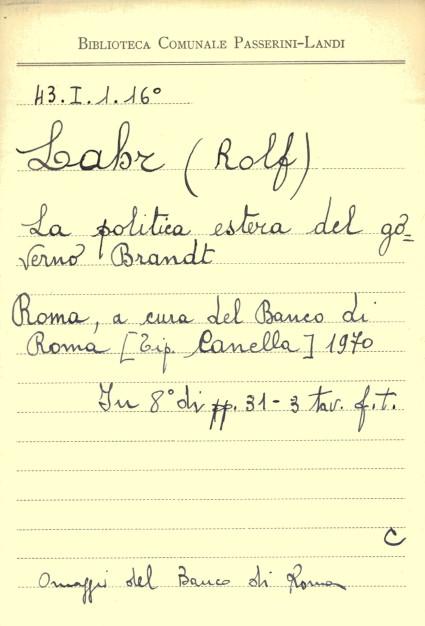 BIBLIOTECA COMUNALE PASSERINI-LANDI
43.I.1.16°
Lahr (Rolf)
La politica estera del go=
verno Brandt
Roma, a cura del Banco di
Roma [Tip. Canella] 1970
In 8° di pp. 31 - 3 tav. f.t.
C
Omaggio del Banco di Roma